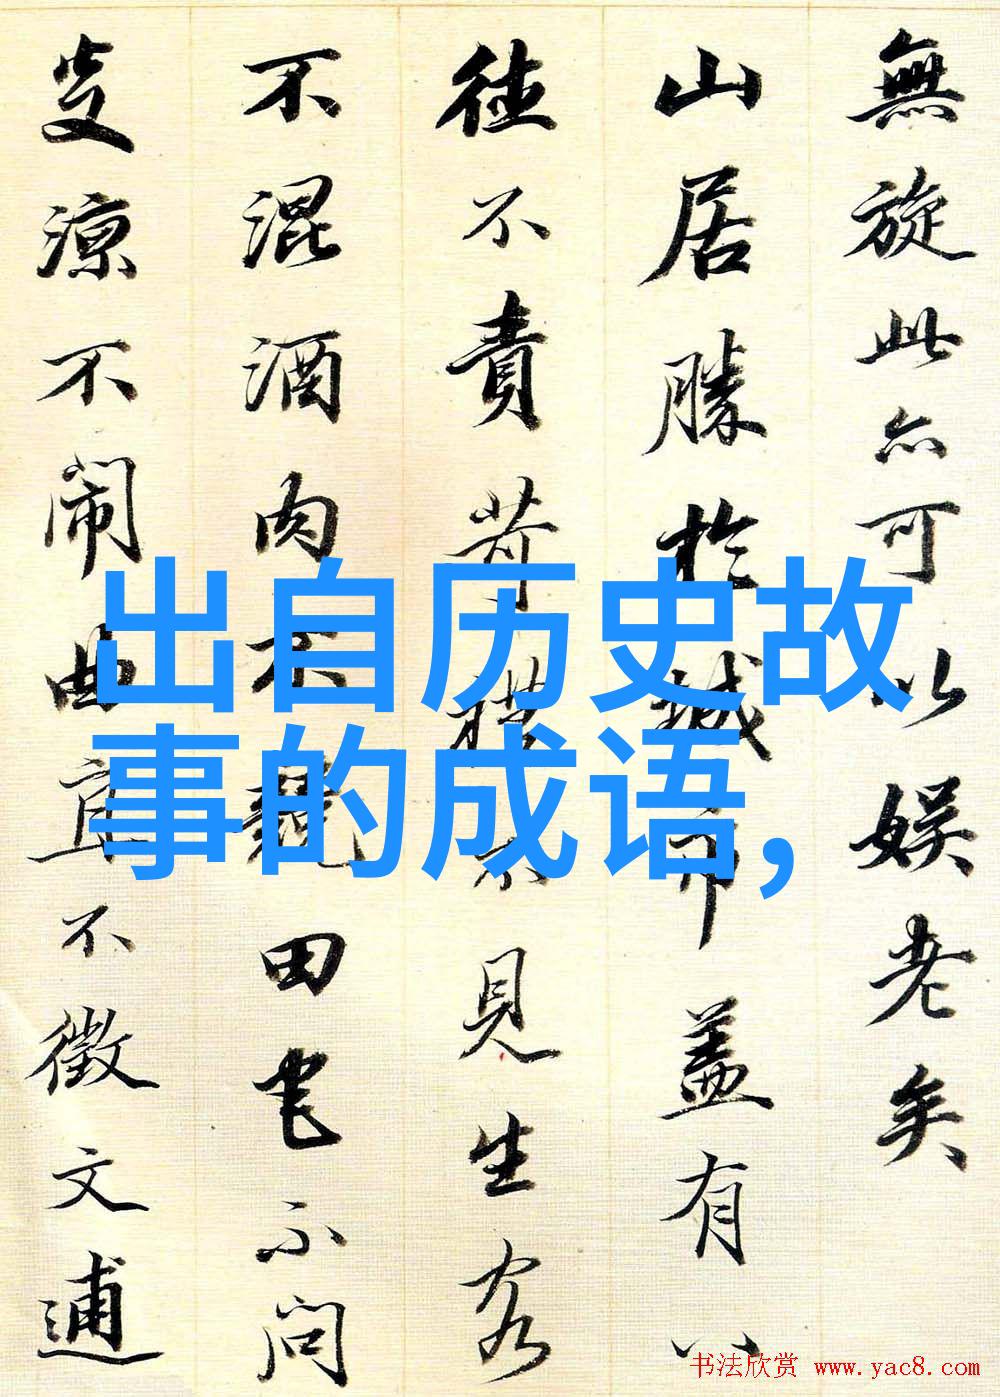 無旋此亦可以娱老矣
山居勝於城市蓋有八
徃不責苛禮不見生客
不混酒肉不競田宅不問
炎涼不闹曲直不徵文逋
出自历史故
事的成语,
书法欣赏 www.yac8.com